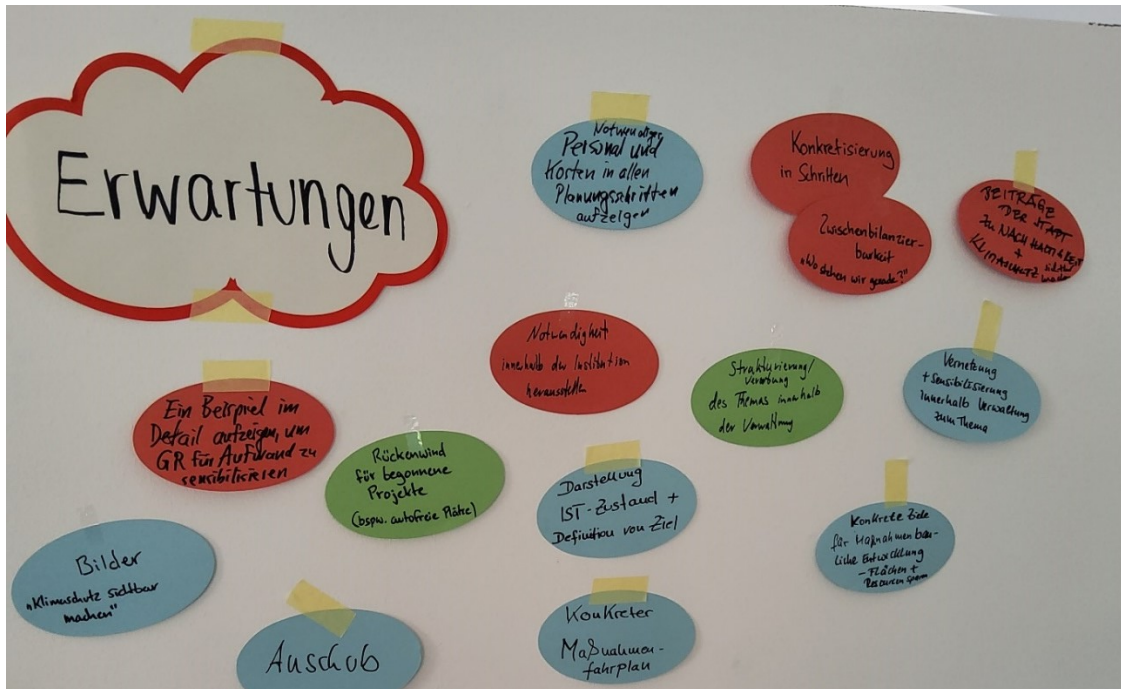 Erwartungen
Notwendiges
Personal und
Kosten in allen
Planungsschritten
aufzeigen
Konkretisierung
in Schritten
Zwischenbilanzier-
barkeit
„Wo stehen wir gerade?"
BEITRÄGE
DER STADT
ZU NACHHALTIGKEIT
+
KLIMASCHUTZ sichtbar
machen
Notwendigkeit
innerhalb der Institution
herausstellen
Strukturierung/
Verortung
des Themas innerhalb
der Verwaltung
Vernetzung
+ Sensibilisierung
innerhalb Verwaltung
zum Thema
Ein Beispiel im
Detail aufzeigen, um
GR für Aufwand zu
sensibilisieren
Rückenwind
für begonnene
Projekte
(bspw. autofreie Plätze)
Darstellung
IST-Zustand +
Definition von Ziel
Konkrete Ziele
für Maßnahmen bau-
liche Entwicklung
- Flächen +
Ressourcen sparen
Bilder
„Klimaschutz sichtbar
machen"
Anschub
Konkreter
Maßnahmen-
fahrplan